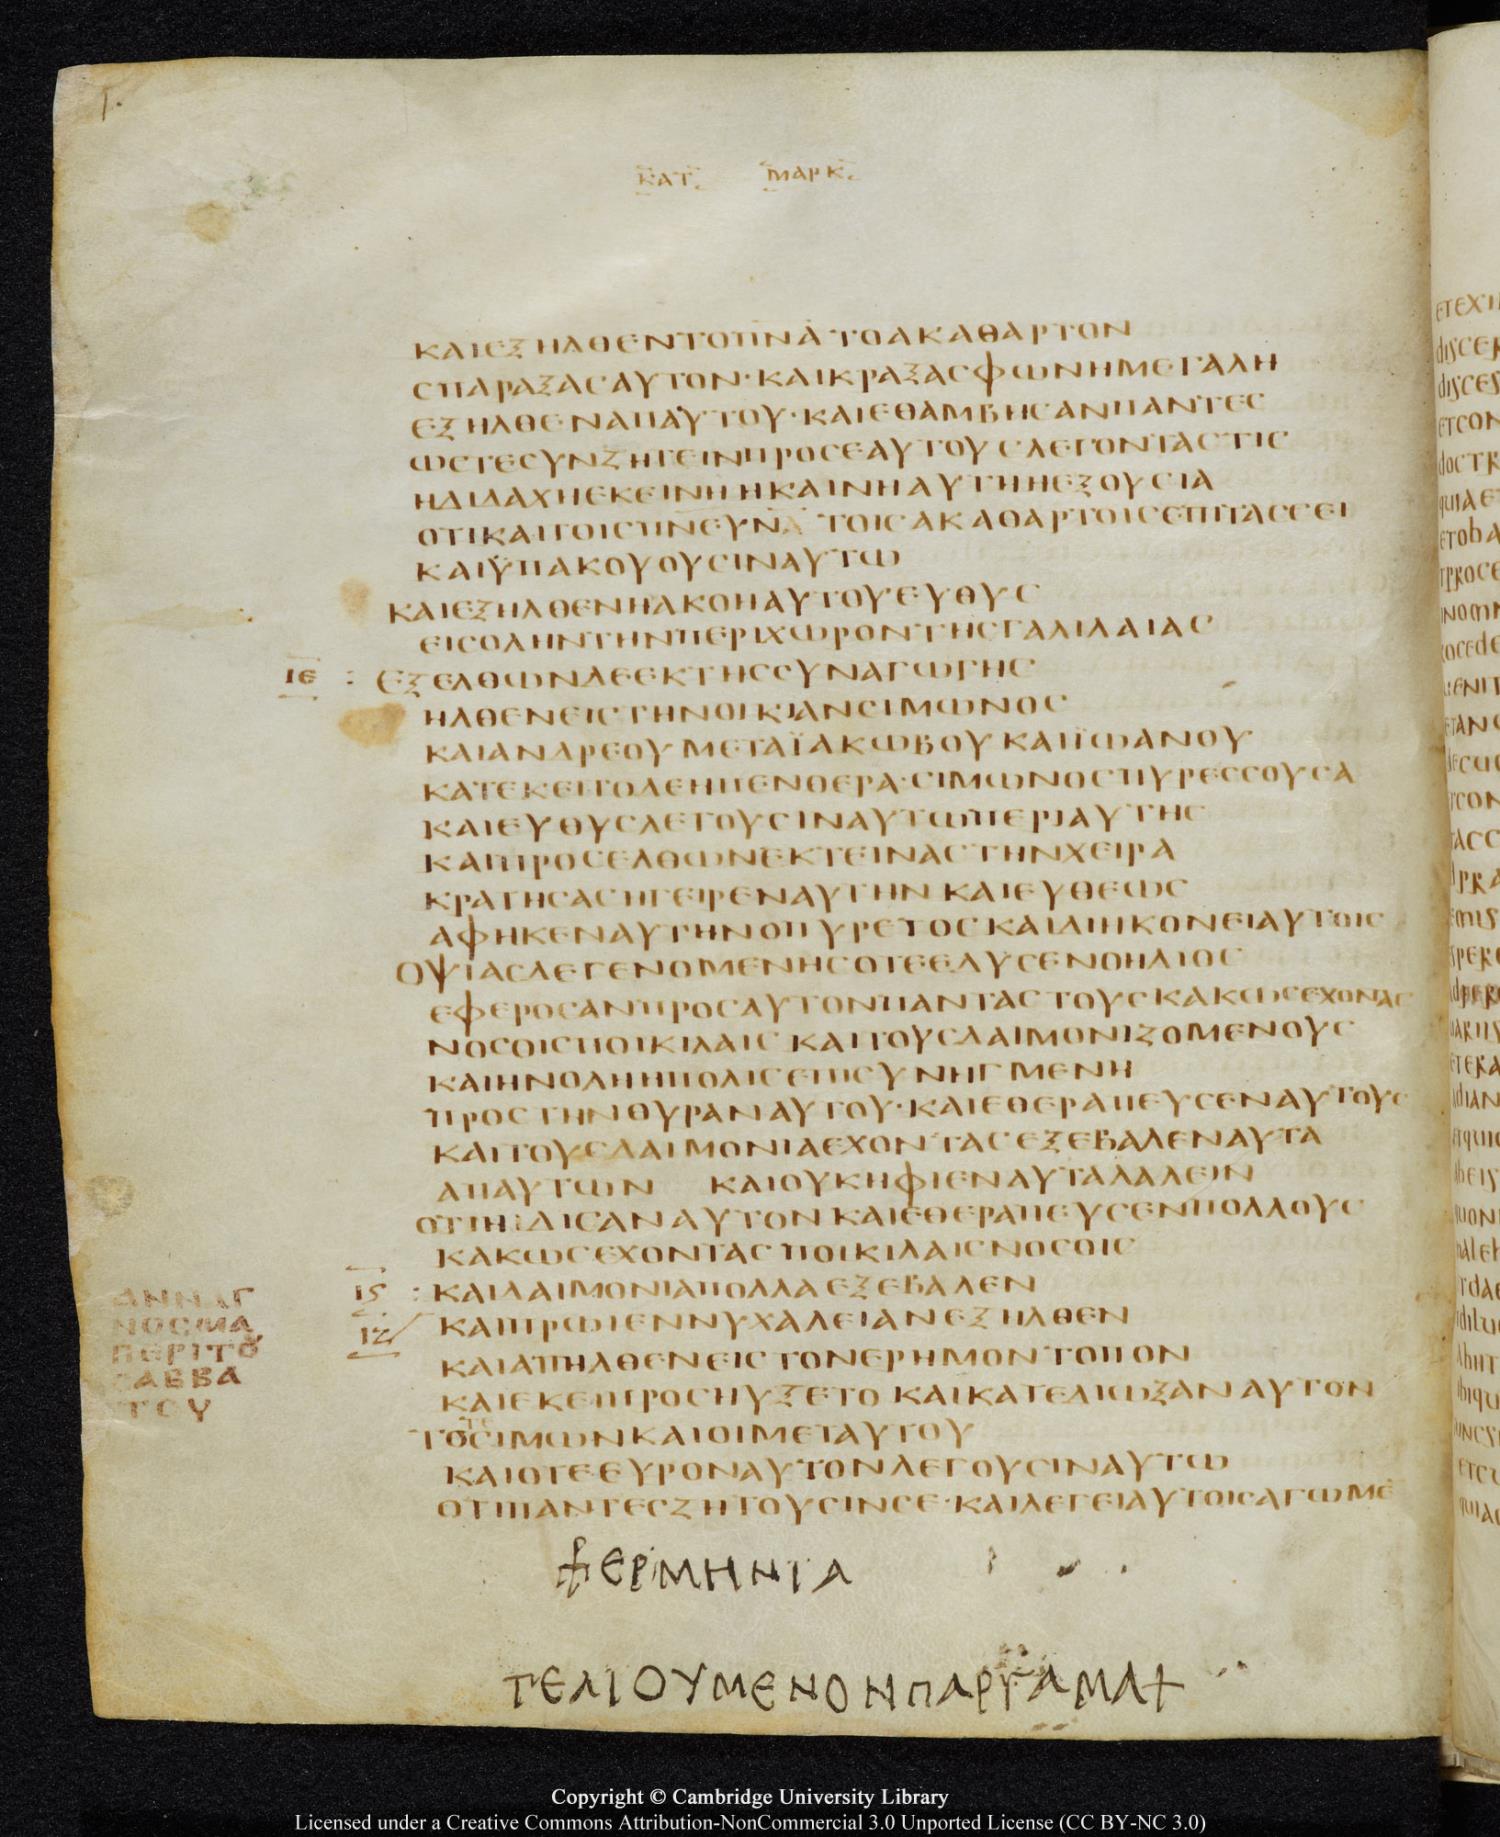 ΚΑΤ. ΜΑΡΚ.
ΚΑΙΕΞΗΛΘΕΝΤΟΠΝΑ ΤΟΑΚΑΘΑΡΤΟΝ
ΣΠΑΡΑΞΑΣΑΥΤΟΝ·ΚΑΙΚΡΑΞΑΣΦΩΝΗΜΕΓΑΛΗ
ΕΞΗΛΘΕΝΑΠΑΥΤΟΥ·ΚΑΙΕΘΑΜΒΗΣΑΝΠΑΝΤΕΣ
ΩΣΤΕΣΥΝΖΗΤΕΙΝΠΡΟΣΕΑΥΤΟΥΣΛΕΓΟΝΤΑΣΤΙΣ
ΗΔΙΔΑΧΗΕΚΕΙΝΗΗΚΑΙΝΗΑΥΤΗΗΕΞΟΥΣΙΑ
ΟΤΙΚΑΙΤΟΙΣΠΝΕΥΝΑ ΤΟΙΣΑΚΑΘΑΡΤΟΙΣΕΠΙΤΑΣΣΕΙ
ΚΑΙΫΠΑΚΟΥΟΥΣΙΝΑΥΤΩ
ΚΑΙΕΞΗΛΘΕΝΗΑΚΟΗΑΥΤΟΥΕΥΘΥΣ
ΕΙΣΟΛΗΝΤΗΝΠΕΡΙΧΩΡΟΝΤΗΣΓΑΛΙΛΑΙΑΣ
ΙΕ : ΕΞΕΛΘΩΝΔΕΕΚΤΗΣΣΥΝΑΓΩΓΗΣ
ΗΛΘΕΝΕΙΣΤΗΝΟΙΚΙΑΝΣΙΜΩΝΟΣ
ΚΑΙΑΝΔΡΕΟΥΜΕΤΑΪΑΚΩΒΟΥΚΑΙΪΩΑΝΟΥ
ΚΑΤΕΚΕΙΤΟΔΕΗΠΕΝΘΕΡΑ·ΣΙΜΩΝΟΣΠΥΡΕΣΣΟΥΣΑ
ΚΑΙΕΥΘΥΣΛΕΓΟΥΣΙΝΑΥΤΩΠΕΡΙΑΥΤΗΣ
ΚΑΙΠΡΟΣΕΛΘΩΝΕΚΤΕΙΝΑΣΤΗΝΧΕΙΡΑ
ΚΡΑΤΗΣΑΣΗΓΕΙΡΕΝΑΥΤΗΝ ΚΑΙΕΥΘΕΩΣ
ΑΦΗΚΕΝΑΥΤΗΝΟΠΥΡΕΤΟΣΚΑΙΔΙΗΚΟΝΕΙΑΥΤΟΙΣ
ΟΨΙΑΣΔΕΓΕΝΟΜΕΝΗΣΟΤΕΕΔΥΣΕΝΟΗΛΙΟΣ
ΕΦΕΡΟΣΑΝΠΡΟΣΑΥΤΟΝΠΑΝΤΑΣΤΟΥΣΚΑΚΩΣΕΧΟΝΑΣ
ΝΟΣΟΙΣΠΟΙΚΙΛΑΙΣ ΚΑΙΤΟΥΣΔΑΙΜΟΝΙΖΟΜΕΝΟΥΣ
ΚΑΙΗΝΟΛΗΗΠΟΛΙΣΕΠΙΣΥΝΗΓΜΕΝΗ
ΠΡΟΣΤΗΝΘΥΡΑΝΑΥΤΟΥ·ΚΑΙΕΘΕΡΑΠΕΥΣΕΝΑΥΤΟΥΣ
ΚΑΙΤΟΥΣΔΑΙΜΟΝΙΑΕΧΟΝΤΑΣΕΞΕΒΑΛΕΝΑΥΤΑ
ΑΠΑΥΤΩΝ ΚΑΙΟΥΚΗΦΙΕΝΑΥΤΑΛΑΛΕΙΝ
ΟΤΙΗΔΙΣΑΝΑΥΤΟΝΚΑΙΕΘΕΡΑΠΕΥΣΕΝΠΟΛΛΟΥΣ
ΚΑΚΩΣΕΧΟΝΤΑΣΠΟΙΚΙΛΑΙΣΝΟΣΟΙΣ
ΙϚ : ΚΑΙΔΑΙΜΟΝΙΑΠΟΛΛΑΕΞΕΒΑΛΕΝ
ΙΖ ΚΑΙΠΡΩΙΕΝΝΥΧΑΛΕΙΑΝΕΞΗΛΘΕΝ
ΚΑΙΑΠΗΛΘΕΝΕΙΣΤΟΝΕΡΗΜΟΝΤΟΠΟΝ
ΚΑΙΕΚΕΙΠΡΟΣΗΥΞΕΤΟ ΚΑΙΚΑΤΕΔΙΩΞΑΝΑΥΤΟΝ
ΤΟΣΙΜΩΝΚΑΙΟΙΜΕΤΑΥΤΟΥ
ΚΑΙΟΤΕΕΥΡΟΝΑΥΤΟΝΛΕΓΟΥΣΙΝΑΥΤΩ
ΟΤΙΠΑΝΤΕΣΖΗΤΟΥΣΙΝΣΕ·ΚΑΙΛΕΓΕΙΑΥΤΟΙΣΑΓΩΜΕ
ΑΝΝΑΓ
ΝΟΣΜΑ
ΠΕΡΙΤΟ
ΣΑΒΒΑ
ΤΟΥ
ΕΡΜΗΝΙΑ
ΤΕΛΙΟΥΜΕΝΟΝΠΑΡΓΑΜΑ
Copyright © Cambridge University Library
Licensed under a Creative Commons Attribution-NonCommercial 3.0 Unported License (CC BY-NC 3.0)